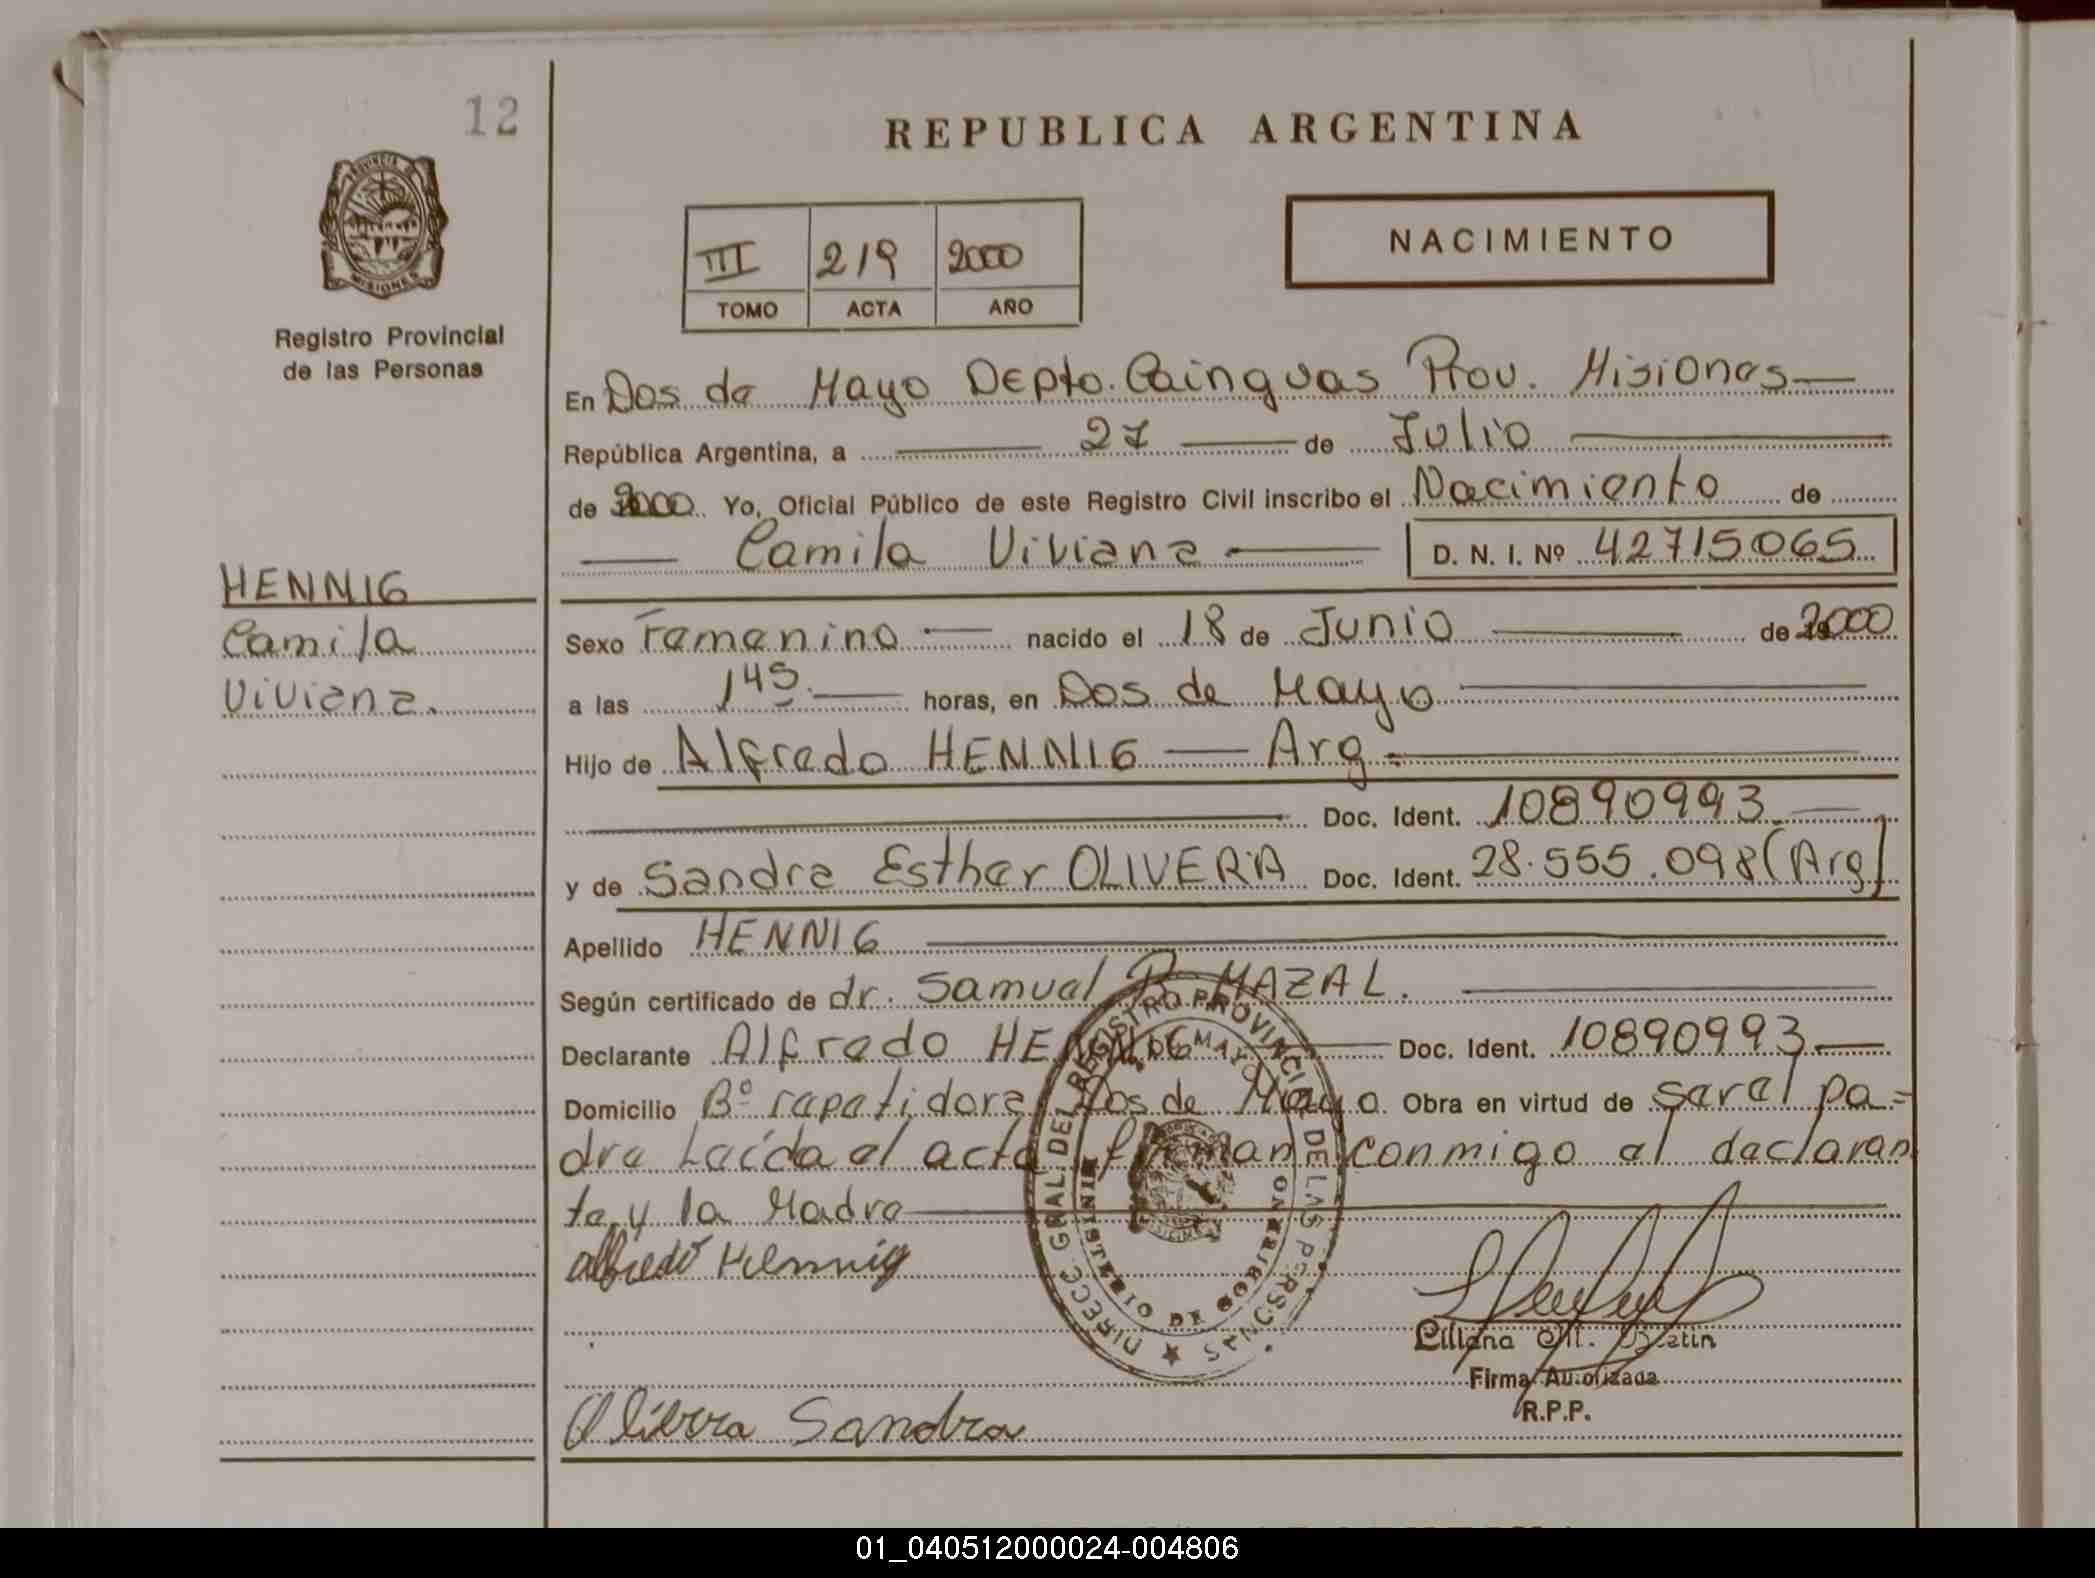 12
REPUBLICA ARGENTINA
PROVINCIA DE
MISIONES
Registro Provincial
de las Personas
III 219 2000
TOMO ACTA AÑO
NACIMIENTO
En Dos de Mayo Depto. Cainguas Prov. Misiones
República Argentina, a 27 de Julio
de 2000 Yo, Oficial Público de este Registro Civil inscribo el Nacimiento de
Camila Viviana D. N. I. Nº 42715065
HENNIG
Camila
Viviana.
Sexo Femenino nacido el 18 de Junio de 2000
a las 1 45 horas, en Dos de Mayo
Hijo de Alfredo HENNIG Arg
Doc. Ident. 10890993
y de Sandra Esther OLIVERA Doc. Ident. 28.555.098 (Arg)
Apellido HENNIG
Según certificado de dr. Samuel MAZAL.
Declarante Alfredo HENNIG Doc. Ident. 10890993
Domicilio Bº repetidora Dos de Mayo Obra en virtud de ser el pa=
dre Leída el acta firman conmigo el declaran
te y la Madre
DIRECC GRAL DEL REGISTRO PROVINCIAL DE LAS PERSONAS
MINISTERIO DE GOBIERNO
DOS DE MAYO
alfredo Hennig
Liliana M.
Firma Autorizada
R.P.P.
Olivera Sandra
01_040512000024-004806